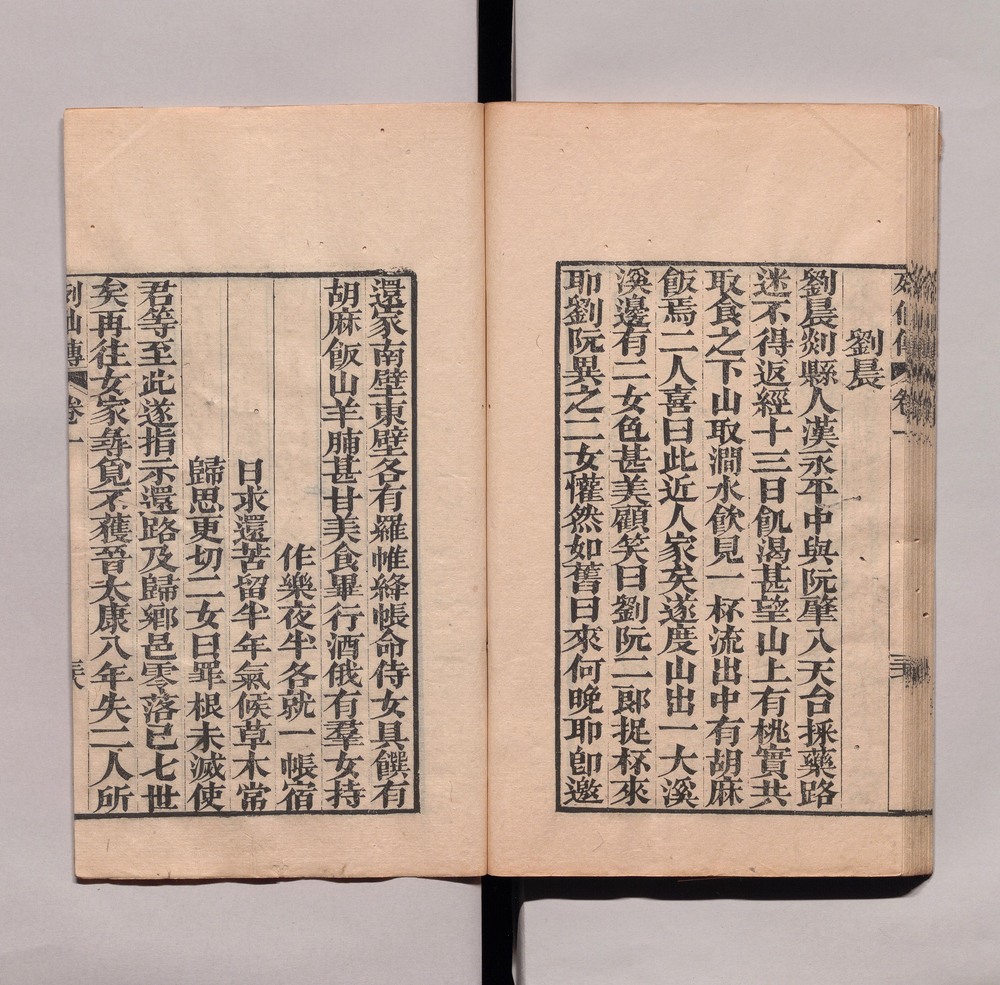 劉晨
劉晨剡縣人漢永平中與阮肇入天台採藥路
迷不得返經十三日飢渴甚望山上有桃實共
取食之下山取澗水飲見一杯流出中有胡麻
飯焉二人喜曰此近人家矣遂度山出一大溪
溪邊有二女色甚美顧笑曰劉阮二郎捉杯來
耶劉阮異之二女懽然如舊曰來何晚耶卽邀
還家南壁東壁各有羅帷絳帳命侍女具饌有
胡麻飯山羊脯甚甘美食畢行酒俄有羣女持
作樂夜半各就一帳宿
日求還苦留半年氣候草木常
歸思更切二女曰罪根未滅使
君等至此遂指示還路及歸鄉邑零落已七世
矣再往女家尋覓不獲晉太康八年失二人所
列仙傳 卷一